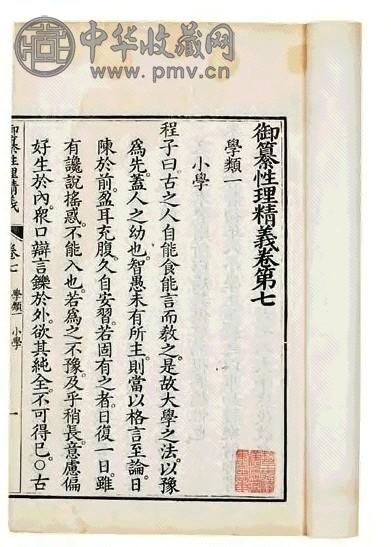 中华收藏网
www.pmv.cn
御纂性理精義卷第七
學類一
小學
程子曰古之人自能食能言而教之是故大學之法以豫
爲先蓋人之幼也智愚未有所主則當以格言至論日
陳於前盈耳充腹久自安習若固有之者日復一日雖
有讒説搖惑不能入也若爲之不豫及乎稍長意慮偏
好生於內衆口辯言鑠於外欲其純全不可得已○古
御纂性理精義
卷七
學類一 小學
一